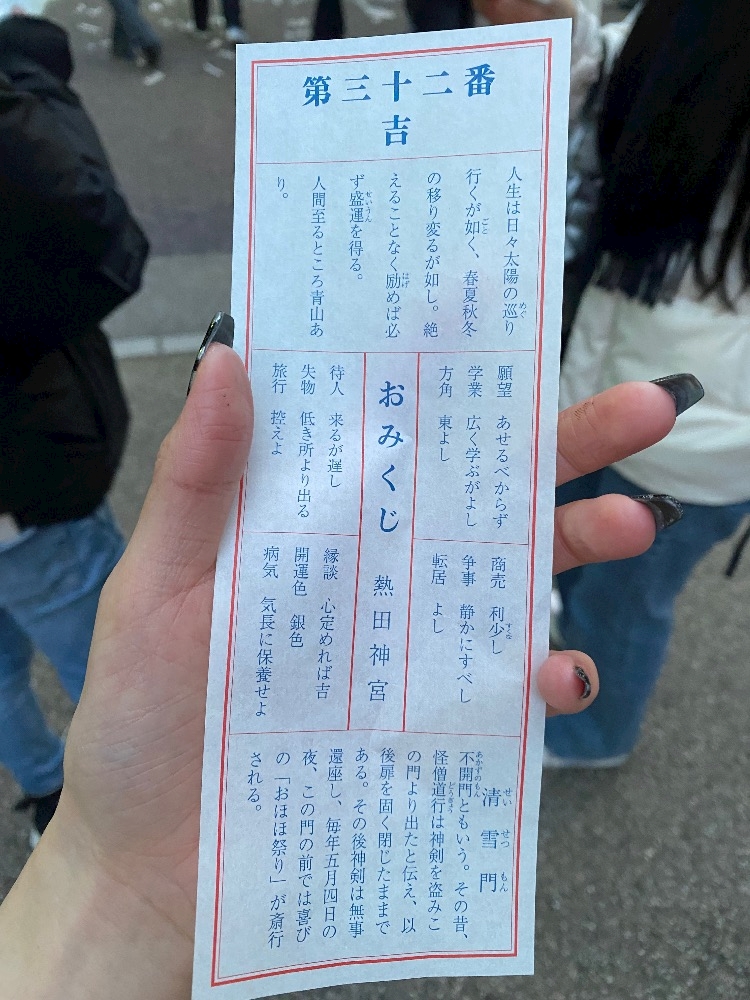 第三十二番
吉
人生は日々太陽の巡り
行くが如く、春夏秋冬
の移り変るが如し。絶
えることなく励めば必
ず盛運を得る。
人間至るところ青山あ
り。
願望 あせるべからず
学業 広く学ぶがよし
方角 東よし
商売 利少し
争事 静かにすべし
転居 よし
おみくじ 熱田神宮
待人 来るが遅し
失物 低き所より出る
旅行 控えよ
縁談 心定めれば吉
開運色 銀色
病気 気長に保養せよ
清雪門
不開門ともいう。その昔、
怪僧道行は神剣を盗みこ
の門より出たと伝え、以
後扉を固く閉じたままで
ある。その後神剣は無事
還座し、毎年五月四日の
夜、この門の前では喜び
の「おほほ祭り」が斎行
される。